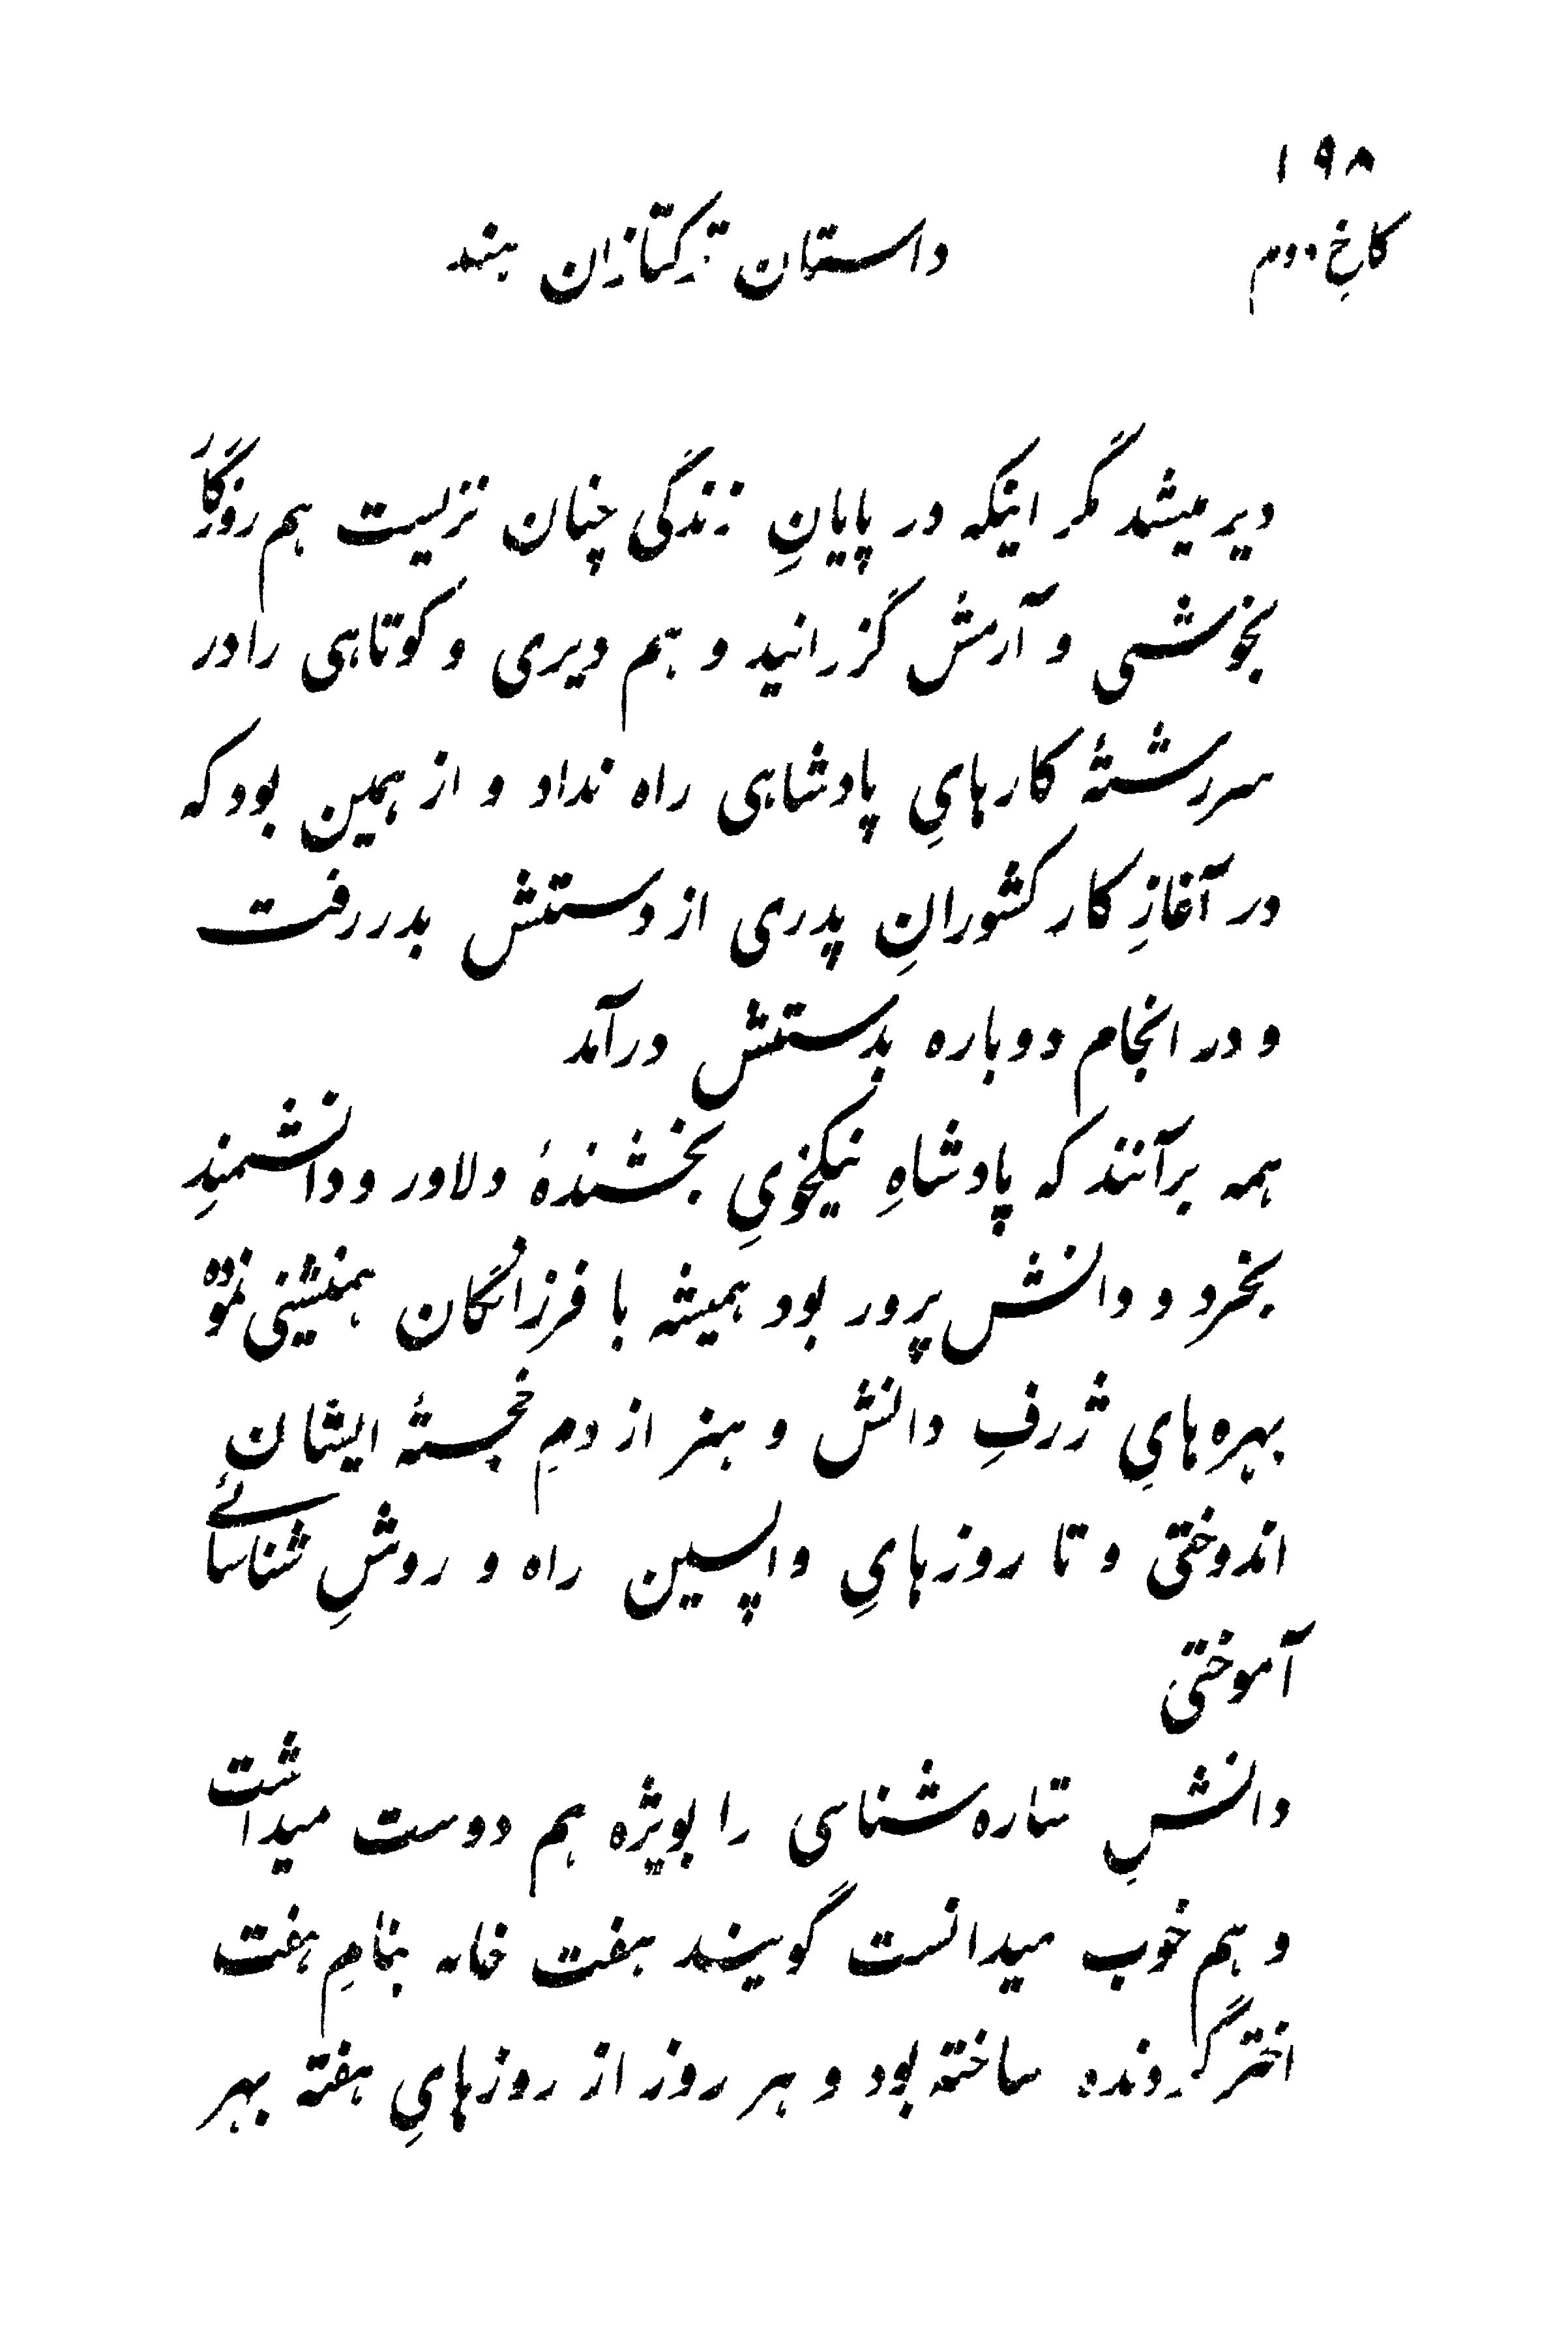 ۱۹۸
کاخِ دوم
داستان ترکتازان هند
دیر میشد مگر اینکه در پایانِ زندگی چنان نزیست هم روزگار
بخوشی و آرمش گزرانید و هم دیری و کوتاهی را در
سررشتهٔ کارهایِ پادشاهی راه نداد و از همین بود که
در آغازِ کار کشورانِ پدری از دستش بدر رفت
و در انجام دوباره بدستش درآمد
همه برآنند که پادشاهِ نیکخویِ بخشندهٔ دلاور و دانشمندِ
بخرد و دانش پرور بود همیشه با فرزانگان همنشینی نموده
بهره هایِ ژرفِ دانش و هنر از دمِ خجستهٔ ایشان
اندوختی و تا روزهایِ واپسین راه و روشِ شناسائے
آموختی
دانشِ ستاره شناسی را بویژه هم دوست میداشت
و هم خوب میدانست گویند هفت خانه بنامِ هفت
اختر گردنده ساخته بود و هر روز از روزهایِ هفته بهر